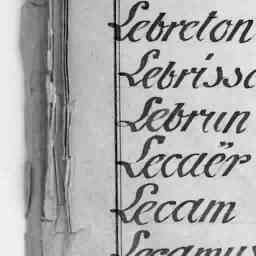 Lebreton
Lebrisso
Lebrun
Lecaër
Lecam
Lecamus